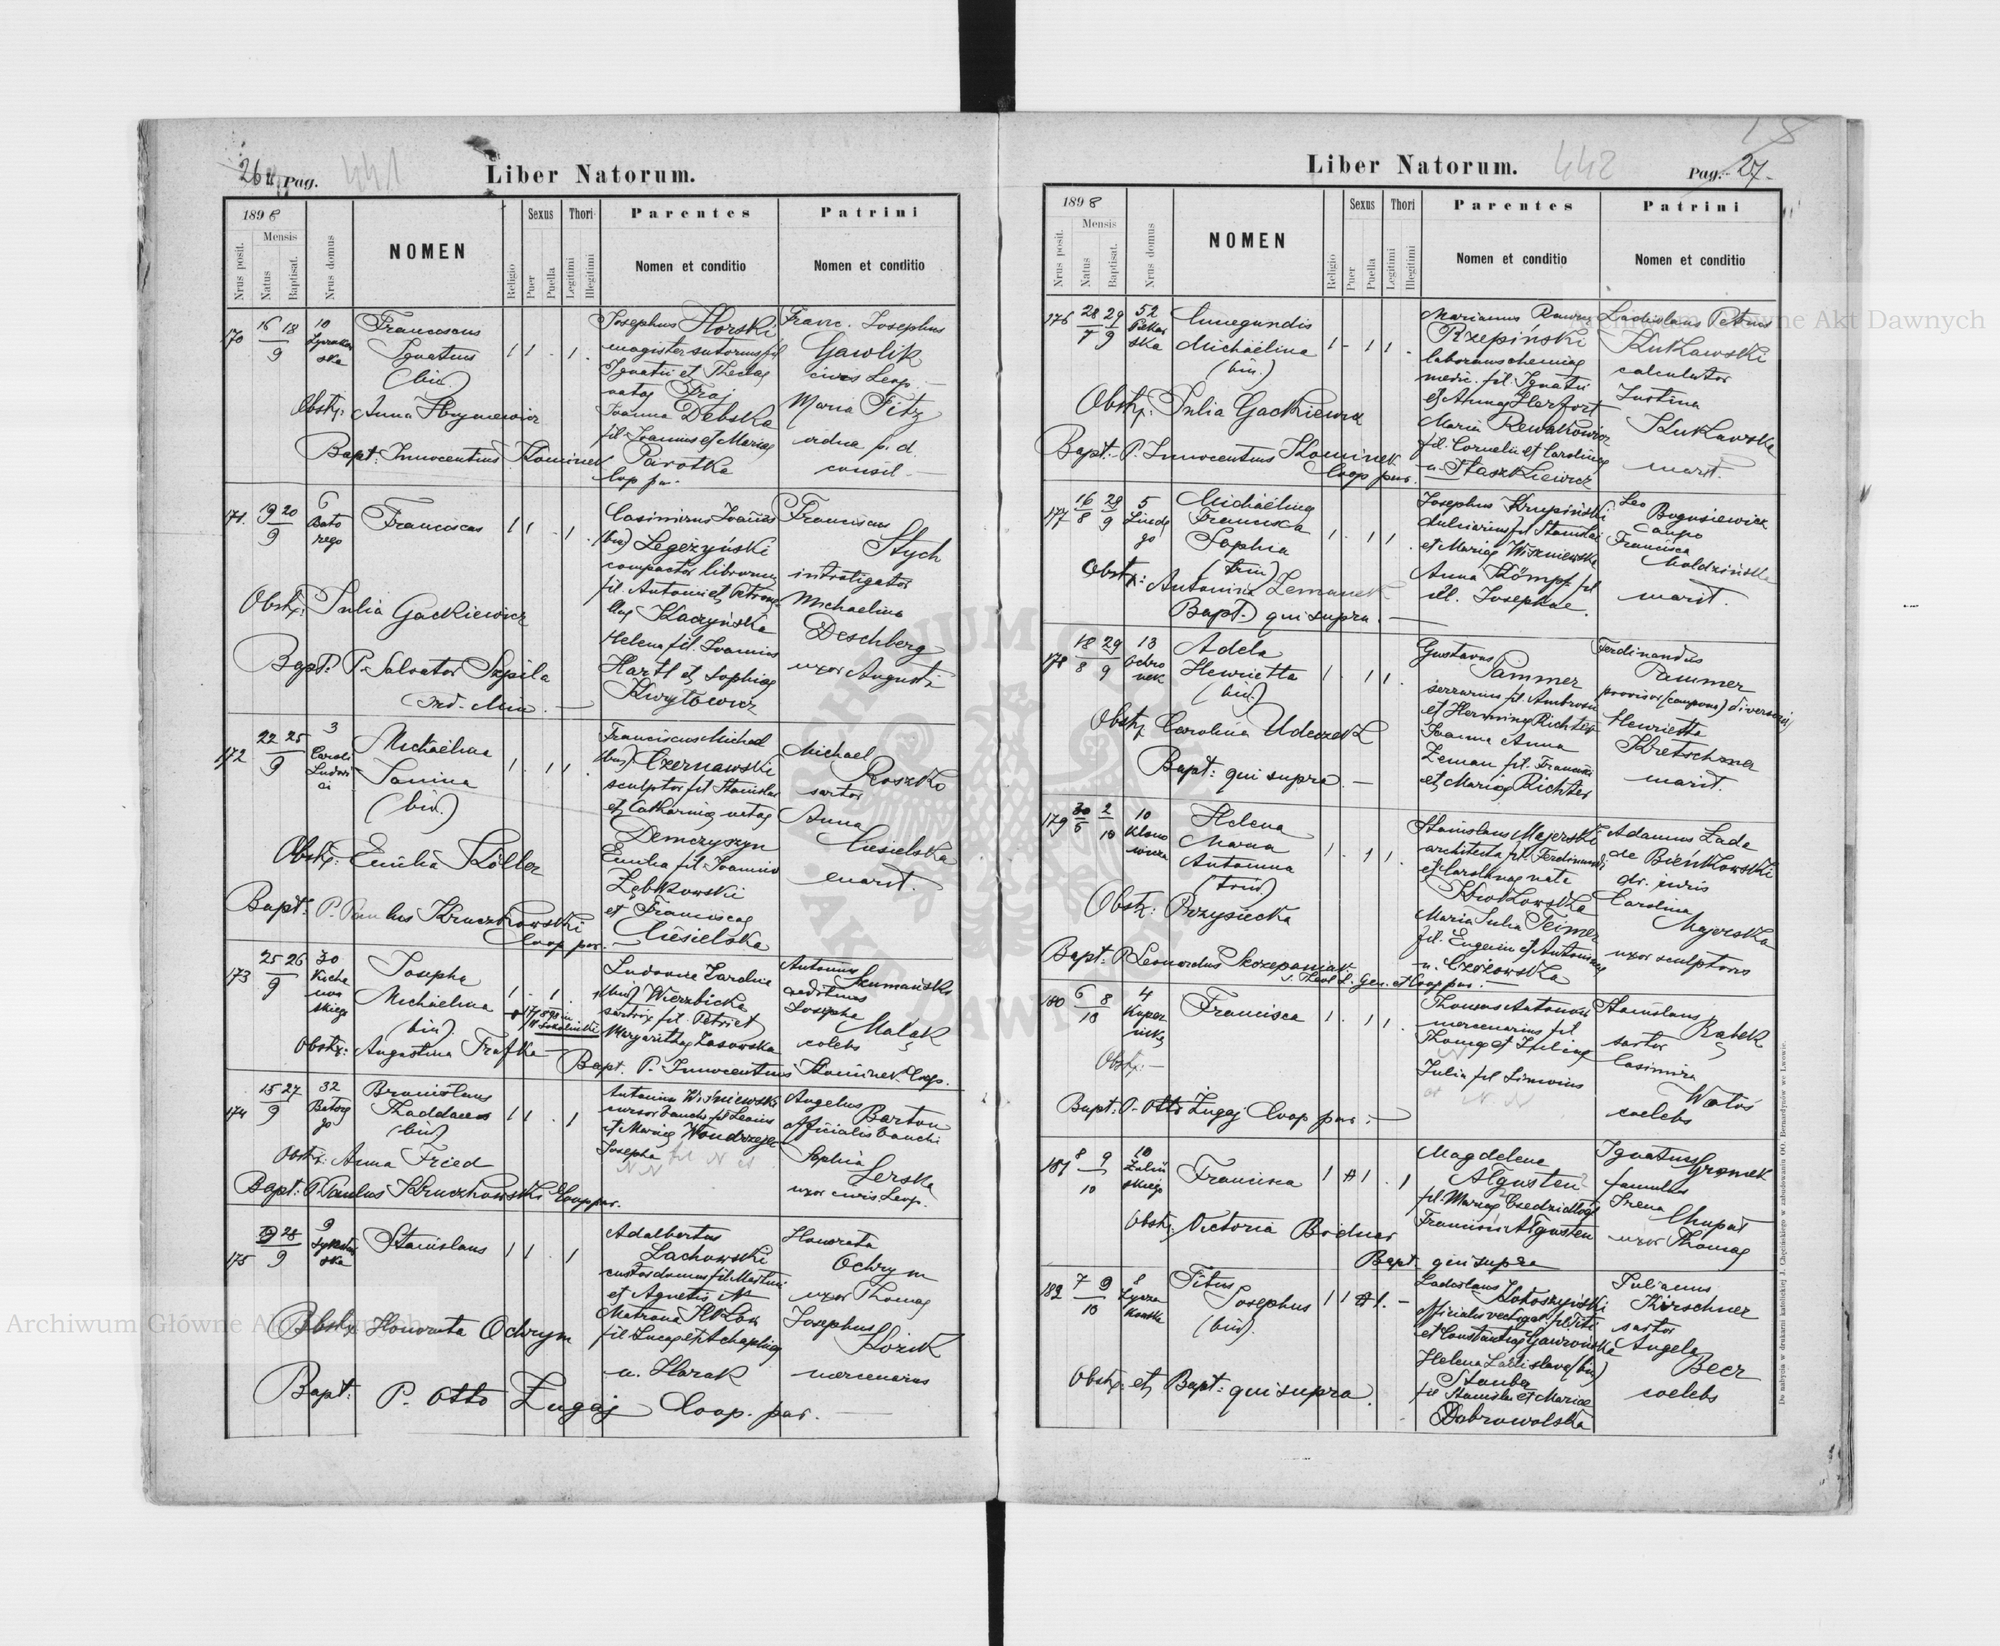 26
Pag.
441
Liber Natorum.
1898
Mensis
Nrus posit.
Natus
Baptisat.
Nrus domus
NOMEN
Religio
Sexus
Puer
Puella
Thori
Legitimi
Illegitimi
Parentes
Nomen et conditio
Patrini
Nomen et conditio
170
16 18
9
10
Franciscus
Ignatius
(bin.)
Obstz: Anna
Bapt: Innocentius Kominek
Coop par.
Josephus Horski
magister sutorius fil
Ignatii et Theclae
natae
Joanna Dębska
fil. Joannis et Mariae
Parotka
Franc. Josephus
Gawlik
civis Leop.
Maria Titz
vidua p. d.
consil
171.
19 20
9
6
Bato
rego
Franciscus
Obstz: Julia Gackiewicz
Bapt: P. Salvator Szpila
Ord. Min.
Casimirus Joannes
(bin) Legeżyński
compactor librorum
fil. Antonii et Petronel
lae Kaczyńska
Helena fil. Joannis
Hartl et Sophiae
Kwytowicz
Franciscus
Stych
introligator
Michaelina
Deschberg
uxor Augusti
172
22 25
9
3
Caroli
Ludovi
ci
Michaelina
Janina
(bin.)
Obstz: Emilia Köller
Bapt: P. Paulus Kruczkowski
Coop par.
Franciscus Michael
(bin) Czernawski
sculptor fil Stanislai
et Catharinae natae
Demczyszyn
Emilia fil. Joannis
Ząbkowski
et Franciscae
Ciesielska
Michael
Roszko
sartor
Anna
Ciesielska
marit.
173
25 26
9
30
Kocha
now
skiego
Josepha
Michaelina
(bin)
Obstz: Augustina Trafka
Bapt. P. Innocentius Kominek Coop.
Ludovica Carolina
(bin) Wierzbicka
sartrix fil. Petri et
Margarithae Zasowska
Antonius
Szumański
aedituus
Josepha
Małak
coelebs
174
15 27
9
32
Batore
go
Bronislaus
Thaddaeus
(bin)
Obstz: Anna Fried
Bapt: P. Paulus Kruczkowski Coop par.
Antonius Wiśniewski
cursor banchi fil Leonis
et Mariae
Josepha fil N et
N N
Angelus
Barton
officialis banchi
Sophia
Serska
uxor civis Leop.
175
28
9
9
Stanislaus
Obstz: Honorata Ochrym
Bapt: P. Otto Zugaj Coop. par.
Adalbertus
Lachowski
custos domus fil Martini
et Agnetis N
Matrona
fil Lucae et Achaphiae
n. Harak
Honorata
Ochrym
uxor Thomae
Josephus
Horsk
mercenarius
Liber Natorum.
442
18
Pag. 27.
1898
Mensis
Nrus posit.
Natus
Baptisat.
Nrus domus
NOMEN
Religio
Sexus
Puer
Puella
Thori
Legitimi
Illegitimi
Parentes
Nomen et conditio
Patrini
Nomen et conditio
176
28 29
7 9
52
Piekar
ska
Cunegundis
Michaëlina
(bin.)
Obstz: Julia Gackiewicz
Bapt. P. Innocentius Kominek
Coop par.
Marianus
Rzepiński
laborans chemiae
medic. fil. Ignatii
et Annae Herfort
Maria Rewakowicz
fil. Cornelii et Carolinae
n. Staszkiewicz
Ladislaus Petrus
Kutkowski
calculator
Justina
Kutkowska
marit.
177
16 29
8 9
5
Lindego
Michaëlina
Francisca
Sophia
(trin)
Obstz: Antonina Zemanek
Bapt. qui supra.
Josephus Krupiński
dulciarius fil Stanislai
et Mariae Wiszniewska
Anna Kömpf fil
ill. Josephae.
Leo
Bogusiewicz
Caupo
Francisca
marit.
178
18 29
8 9
13
Ochro
nek
Adela
Henrietta
(bin.)
Obstz Carolina
Bapt: qui supra
Gustavus
Pammer
serrarius fil. Ambrosii
et Herminae Richter
Joanna Anna
Zeman fil. Francisci
et Mariae Richter
Ferdinandus
Pammer
provisor (caupona) diversorii
Henrietta
Kretschmer
marit.
179
30 2
6 10
10
Klono
wicza
Helena
Maria
Antonina
(trin)
Obstz: Przysiecka
Bapt: P. Leonardus Szczepaniak
S. Theol L. Gen. et Coop par.
Stanislaus Majerski
architecta fil. Ferdinandi
et Carolinae nata
Kwotkowska
Maria Julia Teimer
fil. Eugenii et Antoninae
n. Czyżowska
Adamus Lada
de Bieńkowski
dr. juris
Carolina
Majerska
uxor sculptoris
180
6 8
10
4
Koper
nika
Francisca
Obstz:
Bapt: P. Otto Zugaj Coop par.
Thomas Antonow
mercenarius fil
Thomae et Juliae
N
Julia fil Simonis
et N. N
Stanislaus
Rałek
sartor
Casimira
Watoś
coelebs
181
8 9
10
10
Zaliń
skiego
Francisca
Obstz: Victoria Bodnar
Bapt. qui supra
Magdalena
Algusten
fil. Mariae
Francisci Algusten
Ignatius
Gromek
famulus
Irena
Chupat
uxor Thomae
182
7 9
10
8
Łycza
kowska
Titus
Josephus
(bin).
Obstz: et Bapt: qui supra.
Ladislaus Kłokoszyński
officialis vectigal fil Titi
et Constantiae Gawrońska
Helena Ladislava (bin)
Stauber
fil Stanislai et Mariae
Dobrowolska
Julianus
Kirschner
sartor
Angela
Becz
coelebs
Do nabycia w drukarni katolickiej J. Chęcińskiego w zabudowaniu OO. Bernardynów we Lwowie.
Archiwum Główne Akt Dawnych
Archiwum Główne Akt Dawnych
ARCHIWUM GŁÓWNE AKT DAWNYCH